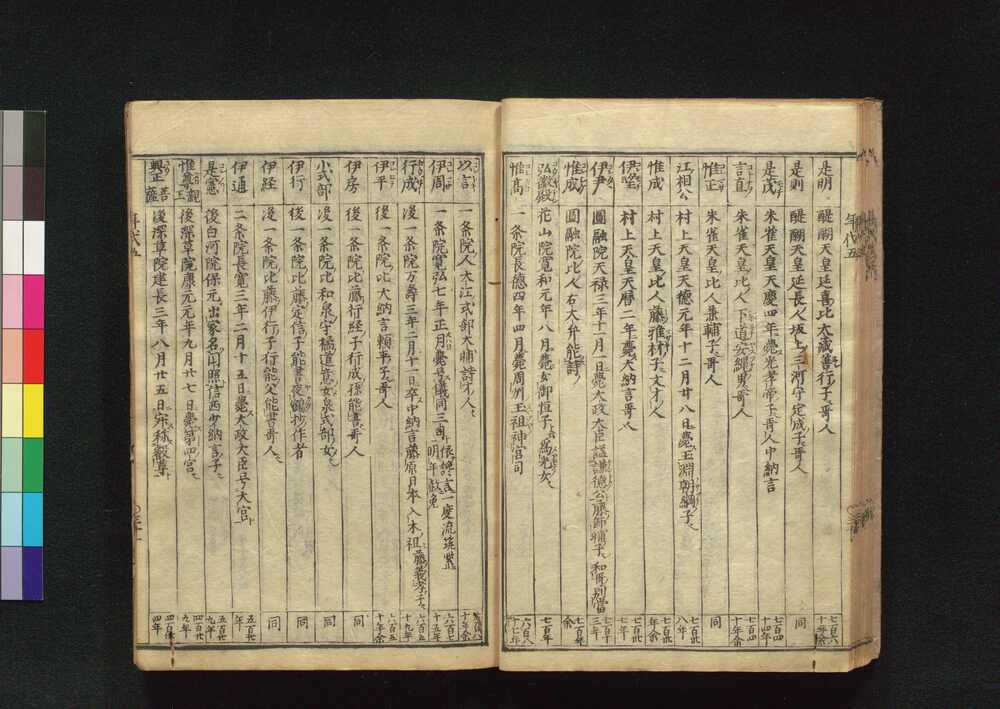 是明 醍醐天皇延喜比太蔵善行子哥人
是則 醍醐天皇延長人坂上三河守定成子哥人 同
是茂 朱雀天皇天慶四年薨光孝帝子哥人中納言
言直 朱雀天皇比人下道安縄男哥人
惟正 朱雀天皇比人兼輔子哥人 同
江相公 村上天皇天徳元年十二月廿八日薨玉淵朝綱子 七百廿八年
惟成 村上天皇比人藤雅材子文才人 七百廿年余
伊望 村上天皇天暦二年薨大納言哥人 七百廿七年
伊尹 圓融院天禄三年十一月一日薨太政大臣謚謙德公藤師輔子和哥別當 七百十三年
惟成 圓融院比人右大弁能詩 七百年余
弘徽殿 花山院寛和元年八月薨女御恒子為光女 七百年
惟高 一条院長徳四年四月薨周州玉祖神宮司 六百八十七年
年代五
以言 一条院人大江式部大輔詩才人
伊周 一条院寛弘七年正月薨号儀同三司依讒言一度流筑紫明年赦免 六百七十五年
行成 後一条院万壽三年二月十一日卒中納言藤原日本入木祖藤義孝子 六百五十九年
伊平 後一条院比大納言頼平子哥人 六百五十年余
伊房 後一条院比藤行経子行成孫能書哥人 同
小式部 後一条院比和泉守橘道貞女泉式部女 同
伊行 後一条院比藤定信子能書夜鶴抄作者 同
伊経 後一条院比藤伊行子行能父能書哥人 同
伊通 二条院長寛三年二月十五日薨太政大臣号大宮 五百廿年
是憲 後白河院保元出家名円照信西少納言子 五百廿九年
惟尊親王 後深草院康元元年九月廿七日薨第四宮 四百廿九年
興正菩薩 後深草院建長三年八月廿五日 四百年
年代五